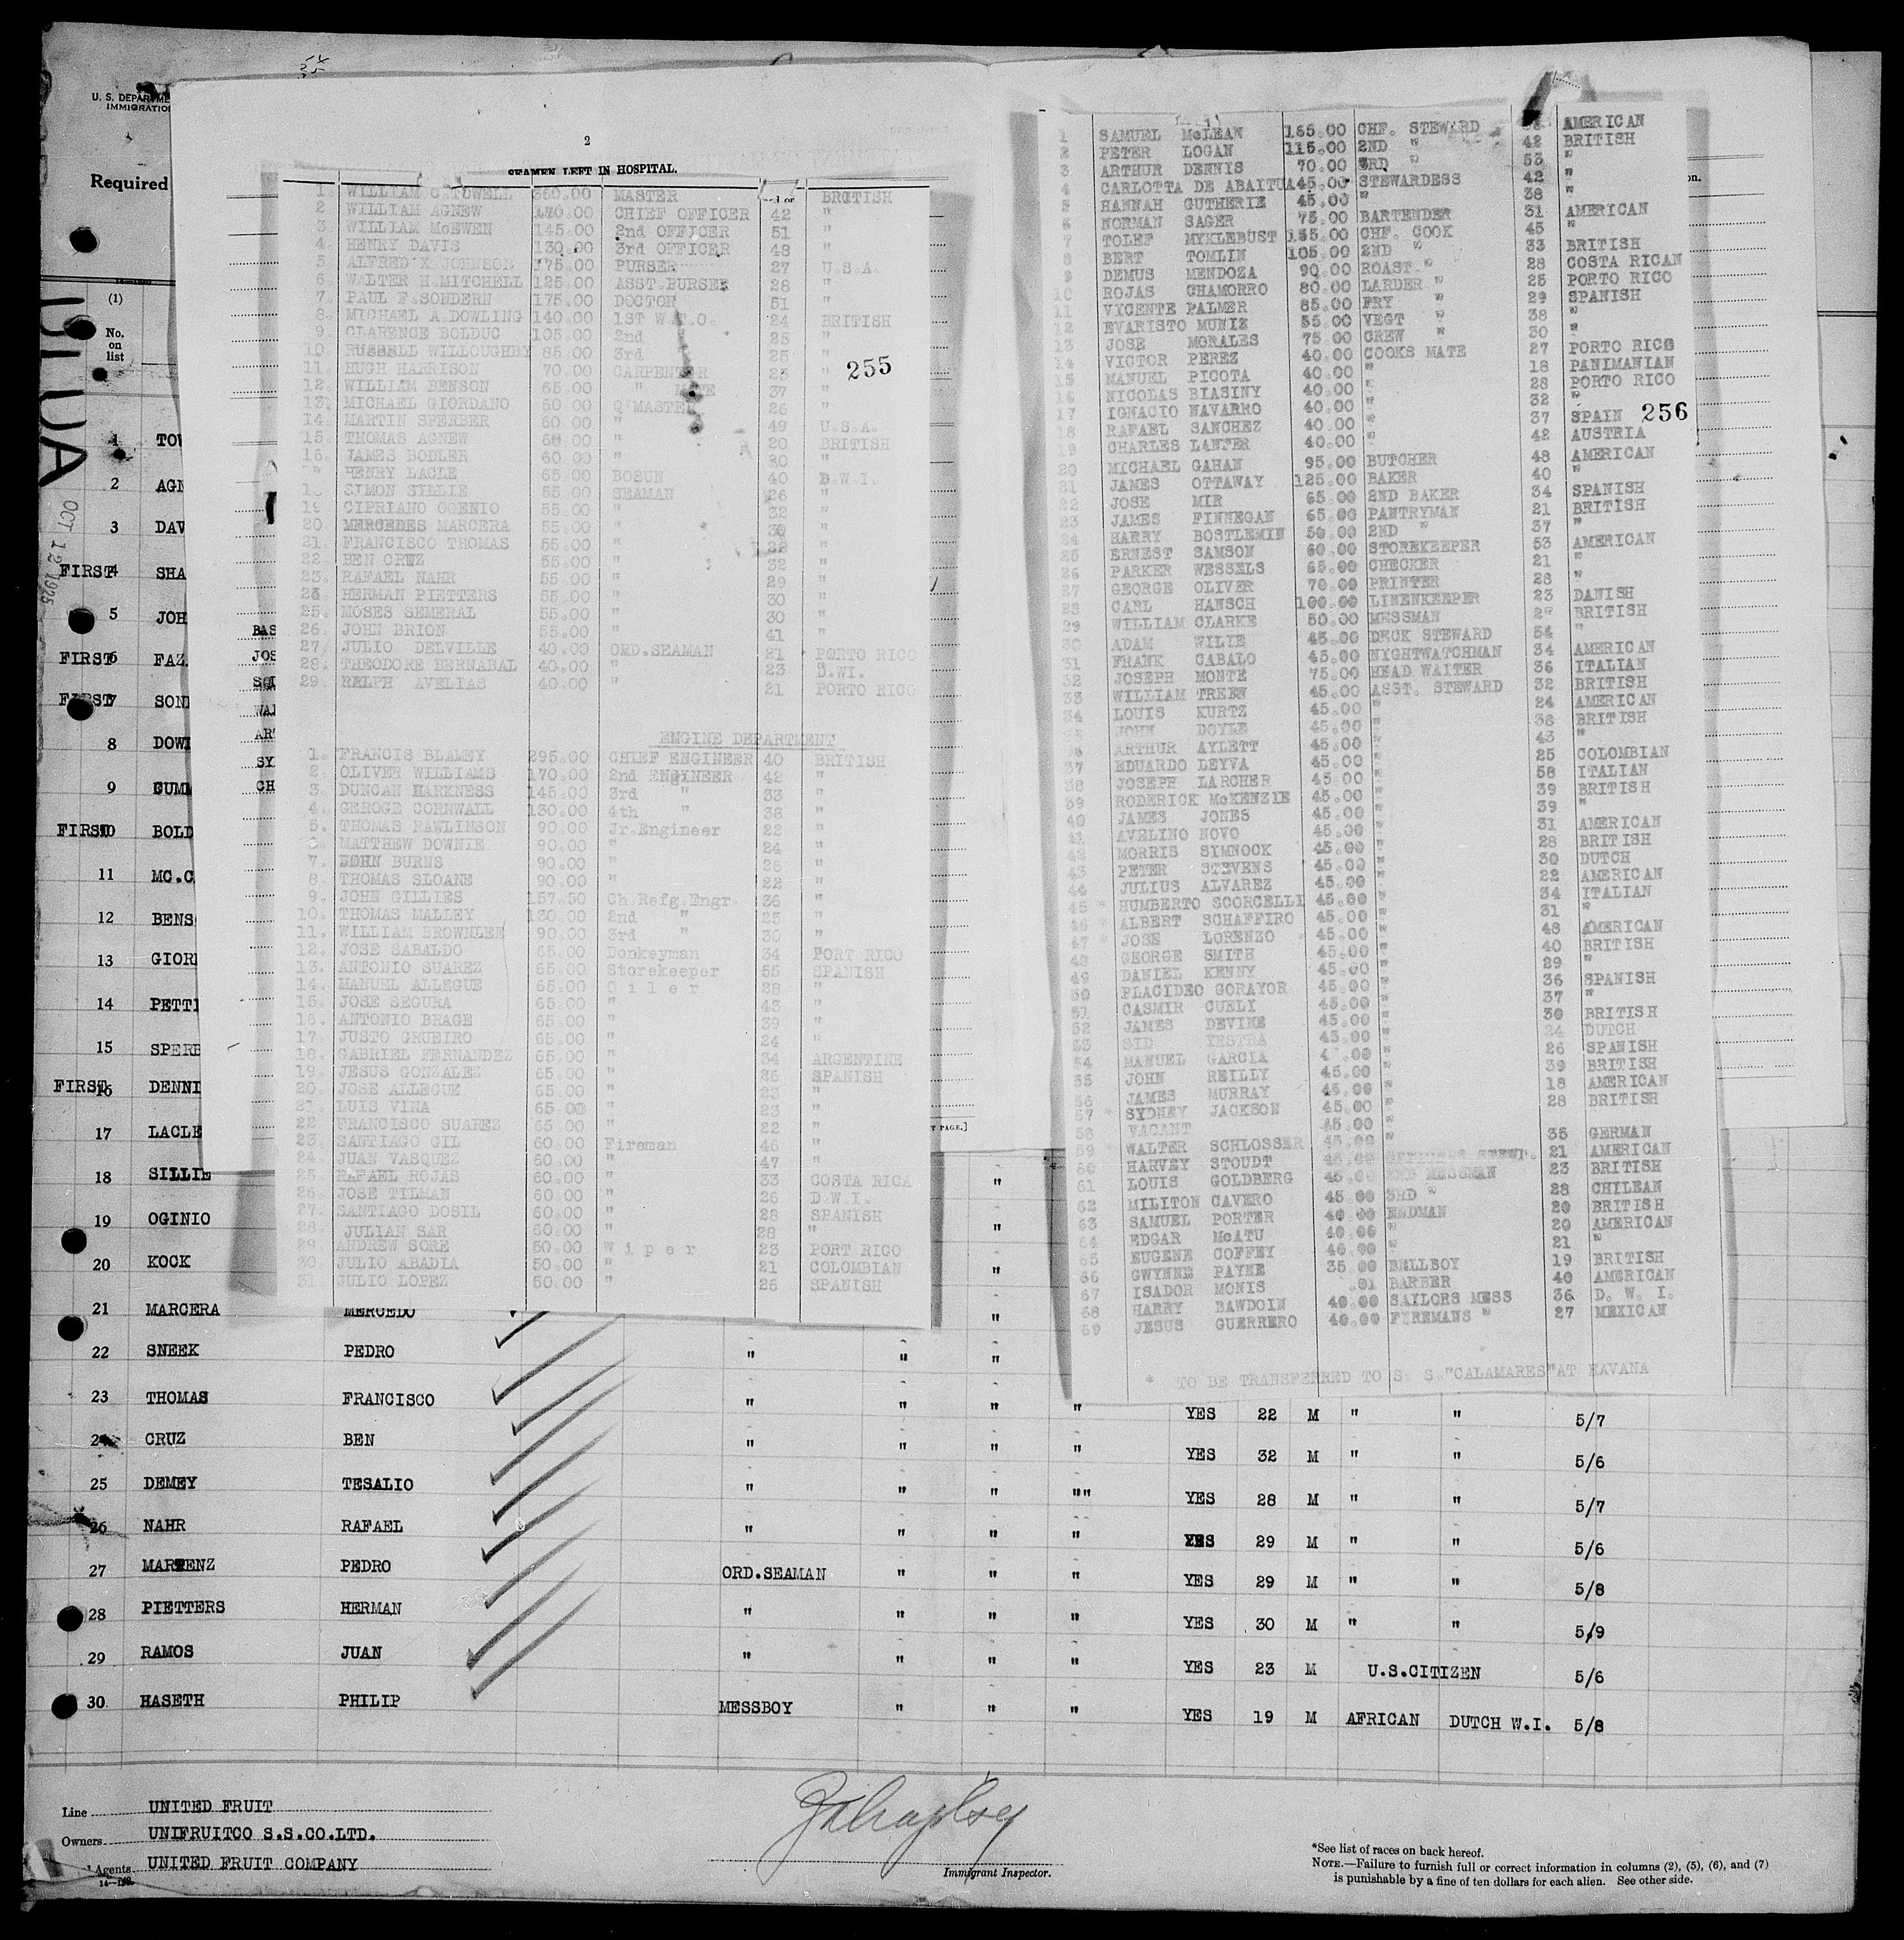 U. S. DEPARTME
IMMIGRATION
Required
(1)
No.
on
list
OCT 12 1925
2
SEAMEN LEFT IN HOSPITAL.
1. WILLIAM C TOWELL 350.00 MASTER BRITISH
2. WILLIAM AGNEW 170.00 CHIEF OFFICER 42 "
3. WILLIAM McEWEN 145.00 2nd OFFICER 51 "
4. HENRY DAVIS 130.00 3rd OFFICER 48 "
5. ALFRED X JOHNSON 175.00 PURSER 27 U.S.A.
6. WALTER H.MITCHELL 125.00 ASST.PURSER 28 "
7. PAUL F.SONDERN 175.00 DOCTOR 51 "
8. MICHAEL A.DOWLING 140.00 1ST W.T.O. 24 BRITISH
9. CLARENCE BOLDUC 105.00 2nd 25 "
10. RUSSELL WILLOUGHBY 85.00 3rd 25 "
11. HUGH HARRISON 70.00 CARPENTER 23 "
255
12. WILLIAM BENSON 65.00 " MATE 37 "
13. MICHAEL GIORDANO 60.00 Q'MASTER 26 "
14. MARTIN SPERBER 60.00 " 49 U.S.A.
15. THOMAS AGNEW 60.00 " 20 BRITISH
16. JAMES BODLER 60.00 " 30 "
HENRY LACLE 65.00 BOSUN 40 D.W.I.
18 SIMON SILLIE 55.00 SEAMAN 26 "
19 CIPRIANO OGENIO 55.00 " 32 "
20 MERCEDES MARCERA 55.00 " 30 "
21. FRANCISCO THOMAS 55.00 " 22 "
22. BEN CRUZ 55.00 " 32 "
23. RAFAEL NAHR 55.00 " 29 "
24. HERMAN PIETTERS 55.00 " 30 "
25. MOSES SEMERAL 55.00 " 30 "
26. JOHN BRION 55.00 " 41 "
27. JULIO DELVILLE 40.00 ORD.SEAMAN 21 PORTO RICO
28. THEODORE BERNABAL 40.00 " 23 D.WI.
29. RALPH AVELIAS 40.00 " 21 PORTO RICO
ENGINE DEPARTMENT
1. FRANCIS BLAMEY 295.00 CHIEF ENGINEER 40 BRITISH
2. OLIVER WILLIAMS 170.00 2nd ENGINEER 42 "
3. DUNCAN HARKNESS 145.00 3rd " 33 "
4. GEROGE CORNWALL 130.00 4th " 38 "
5. THOMAS RAWLINSON 90.00 Jr.Engineer 22 "
6. MATTHEW DOWNIE 90.00 " 24 "
7. JOHN BURNS 90.00 " 26 "
8. THOMAS SLOANE 90.00 " 22 "
9. JOHN GILLIES 157.50 Ch.Refg.Engr. 36 "
10. THOMAS MALLEY 130.00 2nd " 25 "
11. WILLIAM BROWNLEE 90.00 3rd " 30 "
12. JOSE SABALDO 65.00 Donkeyman 34 PORT RICO
13. ANTONIO SUAREZ 65.00 Storekeeper 55 SPANISH
14. MANUEL ALLEGUE 65.00 O i l e r 28 "
15. JOSE SEGURA 65.00 " 43 "
16. ANTONIO BRAGE 65.00 " 39 "
17. JUSTO GRUEIRO 65.00 " 24 "
18. GABRIEL FERNANDEZ 65.00 " 34 ARGENTINE
19. JESUS GONZALEZ 65.00 " 26 SPANISH
20. JOSE ALLEGUE 65.00 " 23 "
21. LUIS VINA 65.00 " 23 "
22 FRANCISCO SUAREZ 65.00 " 22 "
23. SANTIAGO GIL 60.00 Fireman 46 "
24. JUAN VASQUEZ 60.00 " 47 "
25. RAFAEL ROJAS 60.00 " 33 COSTA RICA
26. JOSE TILMAN 60.00 " 26 D.W.I.
27. SANTIAGO DOSIL 60.00 " 28 SPANISH
28. JULIAN SAR 60.00 " 28 "
29. ANDREW SORE 50.00 W i p e r 23 PORT RICO
30. JULIO ABADIA 50.00 " 21 COLOMBIAN
31. JULIO LOPEZ 50.00 " 26 SPANISH
1 SAMUEL McLEAN 165.00 CHF. STEWARD AMERICAN
2 PETER LOGAN 115.00 2ND " 42 BRITISH
3 ARTHUR DENNIS 70.00 3RD " 53 "
4 CARLOTTA DE ABAITUA 45.00 STEWARDESS 42 "
5 HANNAH GUTHERIE 45.00 " 38 "
6 NORMAN SAGER 75.00 BARTENDER 31 AMERICAN
7 TOLEF MYKLEBUST 155.00 CHF. COOK 45 "
8 BERT TOMLIN 105.00 2ND " 33 BRITISH
9 DEMUS MENDOZA 90.00 ROAST " 28 COSTA RICAN
10 ROJAS CHAMORRO 80.00 LARDER " 25 PORTO RICO
11 VICENTE PALMER 85.00 FRY " 29 SPANISH
12 EVARISTO MUNIZ 55.00 VEGT " 38 "
13 JOSE MORALES 75.00 CREW " 30 "
14 VICTOR PEREZ 40.00 COOKS MATE 27 PORTO RICO
15 MANUEL PICOTA 40.00 " 18 PANIMANIAN
16 NICOLAS BIASINY 40.00 " 28 PORTO RICO
17 IGNACIO NAVARRO 40.00 " 32 "
18 RAFAEL SANCHEZ 40.00 " 37 SPAIN
256
19 CHARLES LANTER 40.00 " 42 AUSTRIA
20 MICHAEL GAHAN 95.00 BUTCHER 48 AMERICAN
21 JAMES OTTAWAY 125.00 BAKER 40 "
22 JOSE MIR 65.00 2ND BAKER 34 SPANISH
23 JAMES FINNEGAN 65.00 PANTRYMAN 21 BRITISH
24 HARRY BOSTLEMIN 50.00 2ND " 37 "
25 ERNEST SAMSON 60.00 STOREKEEPER 53 AMERICAN
26 PARKER WESSELS 65.00 CHECKER 21 "
27 GEORGE OLIVER 70.00 PRINTER 28 "
28 CARL HANSCH 100.00 LINENKEEPER 23 DANISH
29 WILLIAM CLARKE 50.00 MESSMAN BRITISH
30 ADAM WILIE 45.00 DECK STEWARD 54 "
31 FRANK CABALO 45.00 NYGHTWATCHMAN 34 AMERICAN
32 JOSEPH MONTE 75.00 HEAD WAITER 36 ITALIAN
33 WILLIAM TREEN 45.00 ASST. STEWARD 32 BRITISH
34 LOUIS KURTZ 45.00 " 24 AMERICAN
35 JOHN DOYLE 45.00 " 38 BRITISH
36 ARTHUR AYLETT 45.00 " 43 "
37 EDUARDO LEYVA 45.00 " 25 COLOMBIAN
38 JOSEPH LARCHER 45.00 " 58 ITALIAN
39 RODERICK McKENZIE 45.00 " 39 BRITISH
40 JAMES JONES 45.00 " 39 "
41 AVELINO NOVO 45.00 " 31 AMERICAN
42 MORRIS SIMNOCK 45.00 " 28 BRITISH
43 PETER STEVENS 45.00 " 30 DUTCH
44 JULIUS ALVAREZ 45.00 " 22 AMERICAN
45 * HUMBERTO SCORCELLI 45.00 " 34 ITALIAN
46 * ALBERT SCHAFFIRO 45.00 " 31 "
47 * JOSE LORENZO 45.00 " 48 AMERICAN
48 GEORGE SMITH 45.00 " 40 BRITISH
49 DANIEL KENNY 45.00 " 29 "
50 PLACIDEO GORAYOR 45.00 " 36 SPANISH
51 CASMIR CUELI 45.00 " 37 "
52 JAMES DEVINE 45.00 " 30 BRITISH
53 SID YESTRA 45.00 " 24 DUTCH
54 MANUEL GARCIA 4 .00 " 26 SPANISH
55 JOHN REILLY 45.00 " 39 BRITISH
56 JAMES MURRAY 45.00 " 18 AMERICAN
57 * SYDNEY JACKSON 45.00 " 28 BRITISH
58 VACANT 45.00 "
59 WALTER SCHLOSSER 45.00 " 35 GERMAN
60 HARVEY STOUDT 45.00 STEW. 21 AMERICAN
61 LOUIS GOLDBERG 45.00 2ND MESSMAN 23 BRITISH
62 MILITON CAVERO 45.00 3RD " 28 CHILEAN
63 SAMUEL PORTER 40.00 ENDMAN 20 BRITISH
64 EDGAR McATU 40.00 " 20 AMERICAN
65 EUGENE COFFEY 40.00 " 21 "
66 GWYNNE PAYNE 35.00 BELLBOY 19 BRITISH
67 ISADOR MONIS .01 BARBER 40 AMERICAN
68 HARRY BAWDOIN 40.00 SAILORS MESS 36 D. W. I.
69 JESUS GUERRERO 40.00 FIREMANS " 27 MEXICAN
* TO BE TRANSFERRED TO S. S."CALAMARES"AT HAVANA
1 TOW
2 AGN
3 DAV
FIRST 4 SHA
5 JOH
FIRST 6 FAZ
FIRST 7 SON
8 DOWL
9 GUMM
FIRST 10 BOLD
11 MC.C
12 BENS
13 GIOR
14 PETTI
15 SPERB
FIRST 16 DENNI
17 LACLE
18 SILLIE "
19 OGINIO "
20 KOCK "
21 MARCERA MERCEDO "
22 SNEEK PEDRO " " "
23 THOMAS FRANCISCO " " " " YES 22 M " " 5/7
24 CRUZ BEN " " " " YES 32 M " " 5/6
25 DEMEY TESALIO " " " "" YES 28 M " " 5/7
26 NAHR RAFAEL " " " " YES 29 M " " 5/6
27 MARTENZ PEDRO ORD.SEAMAN " " " YES 29 M " " 5/8
28 PIETTERS HERMAN " " " " YES 30 M " " 5/9
29 RAMOS JUAN " " " " YES 23 M U.S.CITIZEN 5/6
30. HASETH PHILIP MESSBOY " " " YES 19 M AFRICAN DUTCH W.I. 5/8
Line UNITED FRUIT
Owners UNIFRUITCO S.S.CO.LTD.
Agents UNITED FRUIT COMPANY
Immigrant Inspector.
*See list of races on back hereof.
NOTE.—Failure to furnish full or correct information in columns (2), (5), (6), and (7)
is punishable by a fine of ten dollars for each alien. See other side.